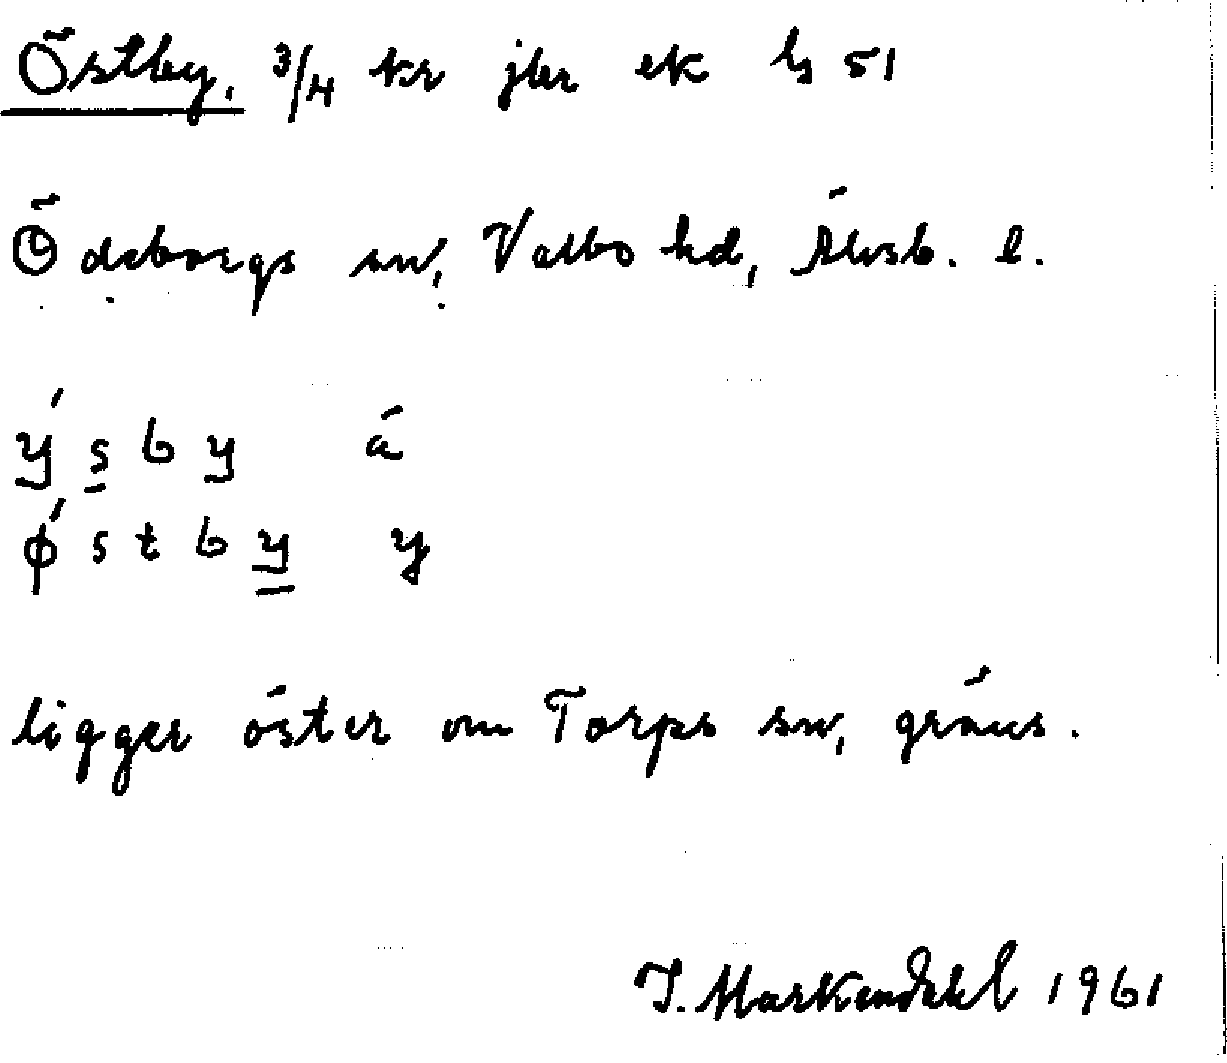 Östby, 3/4 kr jbr ek b 51
Ödeborgs sn, Valbo hd, Älvsb. l.
ýsby á
ǿstby y
ligger öster om Torps sn, gräns.
I. Markendahl 1961